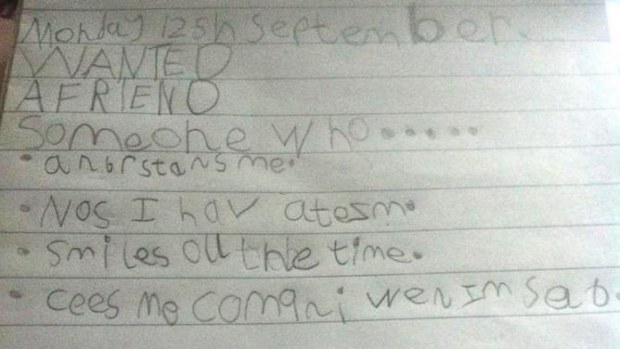 Monday 12sh September.
WANTED
A FRIEND
Someone who.....
• anbrstans me.
• Nos I hav atesm.
• smiles all the time.
• cees me comqni wen Im sab.